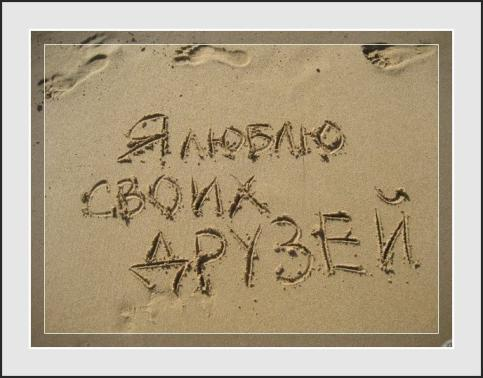 Я люблю
своих
друзей